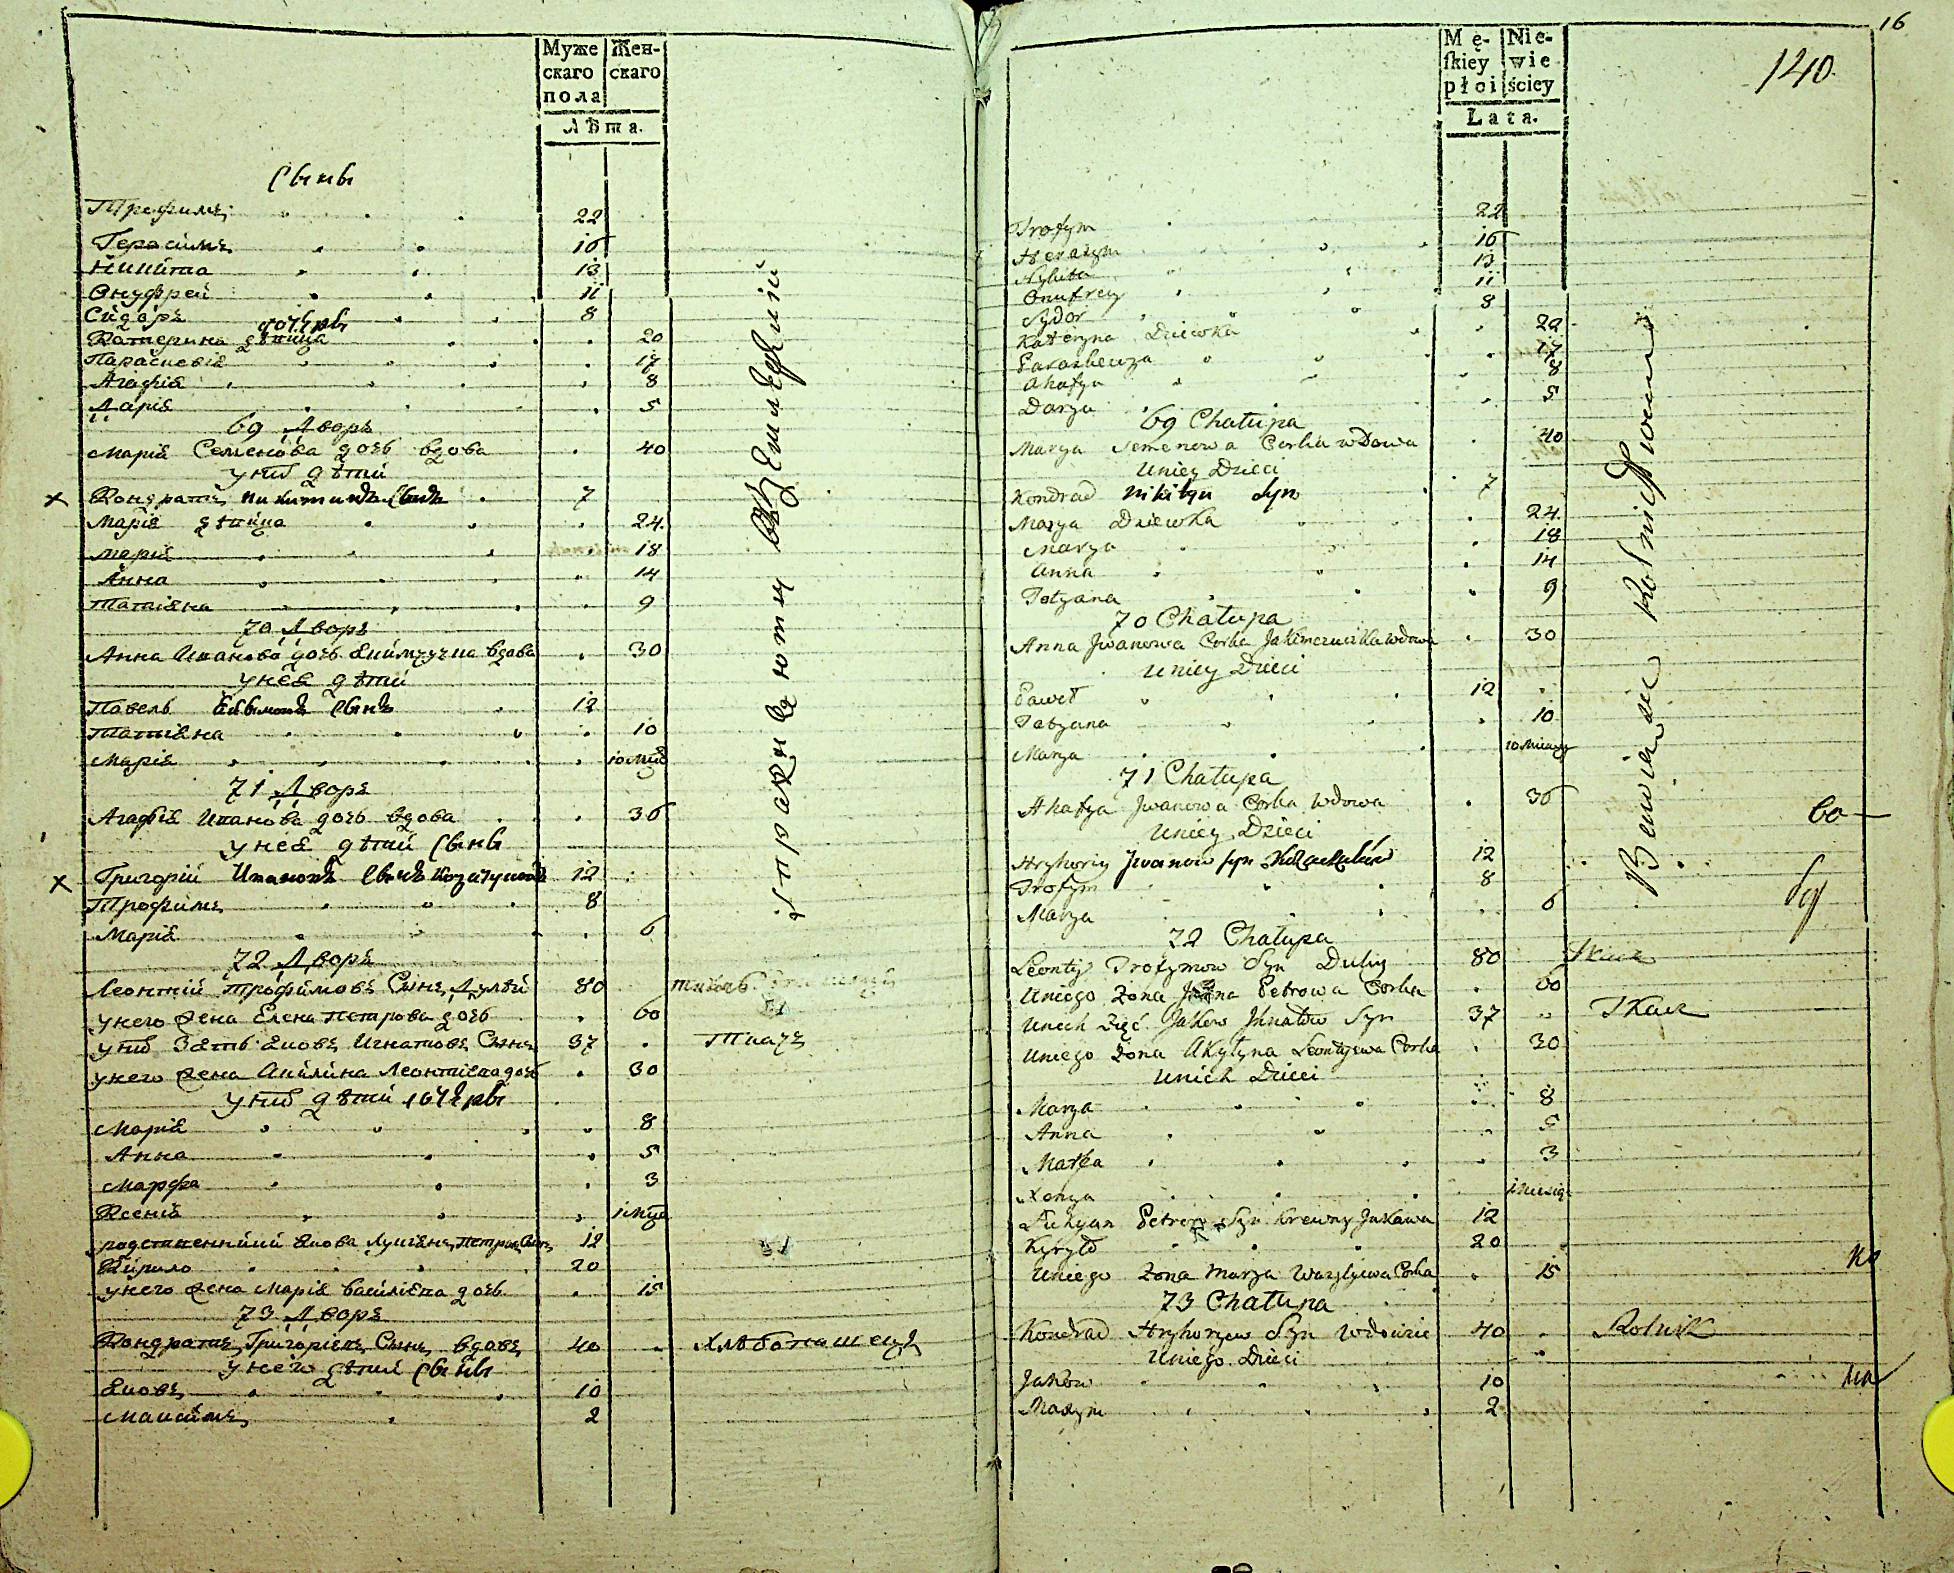 Муже скаго пола
Жен- скаго
Лѣта.
Сыны
Трофимъ 22
Герасимъ 16
Никита 13
Онуфрей 11
Сидоръ 8
дочери
Катерина дѣвица 20
Параскевія 17
Агафія 8
Дарія 5
69 Дворъ
Марія Семенова дочь вдова 40
у ней дѣти
Кондратъ Никитинъ сынъ 7
Марія дѣвица 24
Марія 18
Анна 14
Татіяна 9
70 Дворъ
Анна Иванова дочь Якимчучка вдова 30
у нея дѣти
Павелъ сынъ 12
Татіяна 10
Марія 10 мѣс
71 Дворъ
Агафія Иванова дочь вдова 36
у нея дѣти Сыны
Григорій Ивановъ сынъ 12
Трофимъ 8
Марія 6
72 Дворъ
Леонтій Трофимовъ Сынъ Дулый 80
у него жена Елена Петрова дочь 60
у нихъ Зять Яковъ Игнатовъ Сынъ 37 Ткачъ
у него жена Акилина Леонтіева дочь 30
у нихъ дѣти дочери
Марія 8
Анна 5
Марфа 3
Ксенія 1 мѣс
родственники Якова Лукіянъ Петровъ Сынъ 12
Кирило 20
у него жена Марія Василіева дочь 15
73 Дворъ
Кондратъ Григоріевъ Сынъ вдовъ 40 Хлѣбопашецъ
у него дѣти Сыны
Яковъ 10
Максимъ 2
16
140
Mę- skiey płci
Nie- wie ściey
Lata.
Trofym 22
Herasym 16
Nykita 13
Onufrey 11
Sydor 8
Kateryna Dziewka 20
Paraskewya 17
Ahafya 8
Darya 5
69 Chałupa
Marya Semenowa Corka wdowa 40
Uniey Dzieci
Kondrad Nikityn Syn 7
Marya Dziewka 24
Marya 18
Anna 14
Tatyana 9
70 Chałupa
Anna Jwanowa Corka Jakimczuczka wdowa 30
Uniey Dzieci
Paweł 12
Tatyana 10
Marya 10 Miesięcy
71 Chałupa
Ahafya Jwanowa Corka Wdowa 36
Uniey Dzieci
Hryhoriy Jwanow syn 12
Trofym 8
Marya 6
72 Chałupa
Leontiy Trofymow Syn Duły 80 Tkacz
Uniego Żona Petrowa Corka 60
Unich Zięć Jakow Jhnatow Syn 37 Tkacz
Uniego Żona Akylyna Leontyewa Corka 30
Unich Dzieci
Marya 8
Anna 5
Marfa 3
Xenya 1 Miesiąc
Łukyan Petrow Syn krewny Jakowa 12
Kyryło 20
Uniego Żona Marya Wasylyewa Corka 15
73 Chałupa
Kondrad Hryhoryew Syn Wdowiec 40 Rolnik
Uniego Dzieci
Jakow 10
Maxym 2